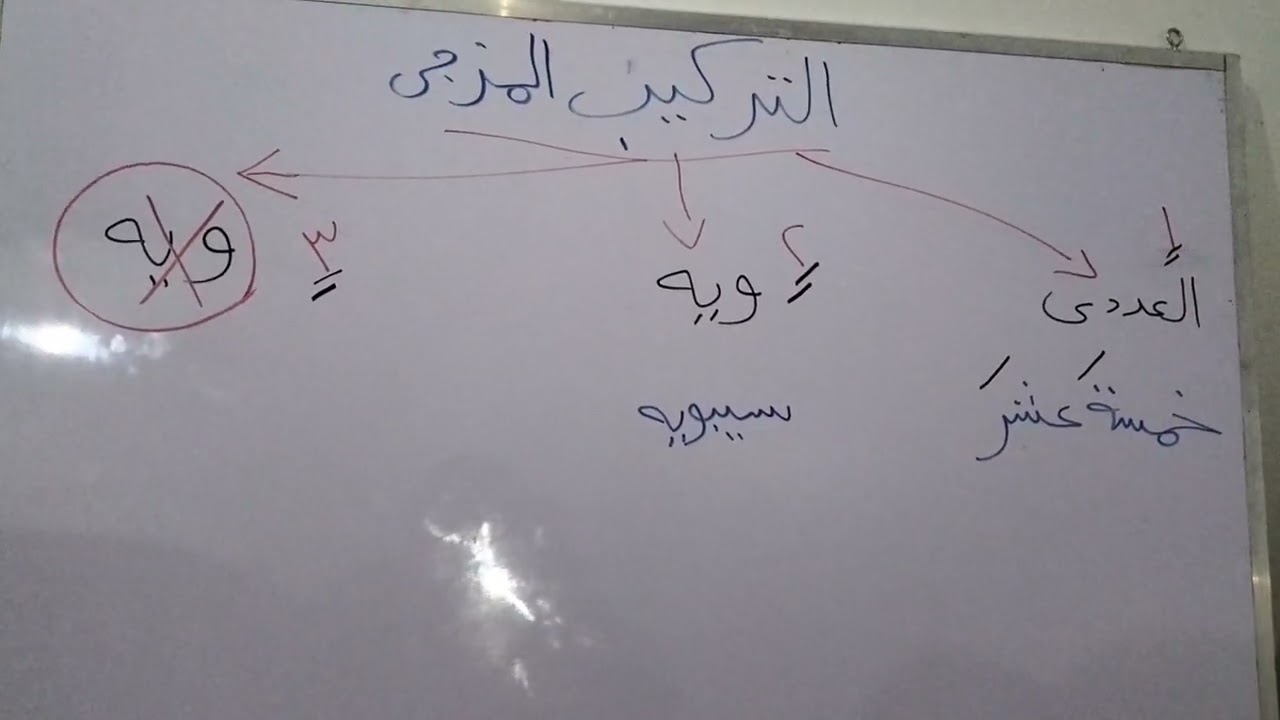 التركيب المزجى
١ ٢ ٣
العددى ويه ويه
خمسةَ عشرَ سيبويه